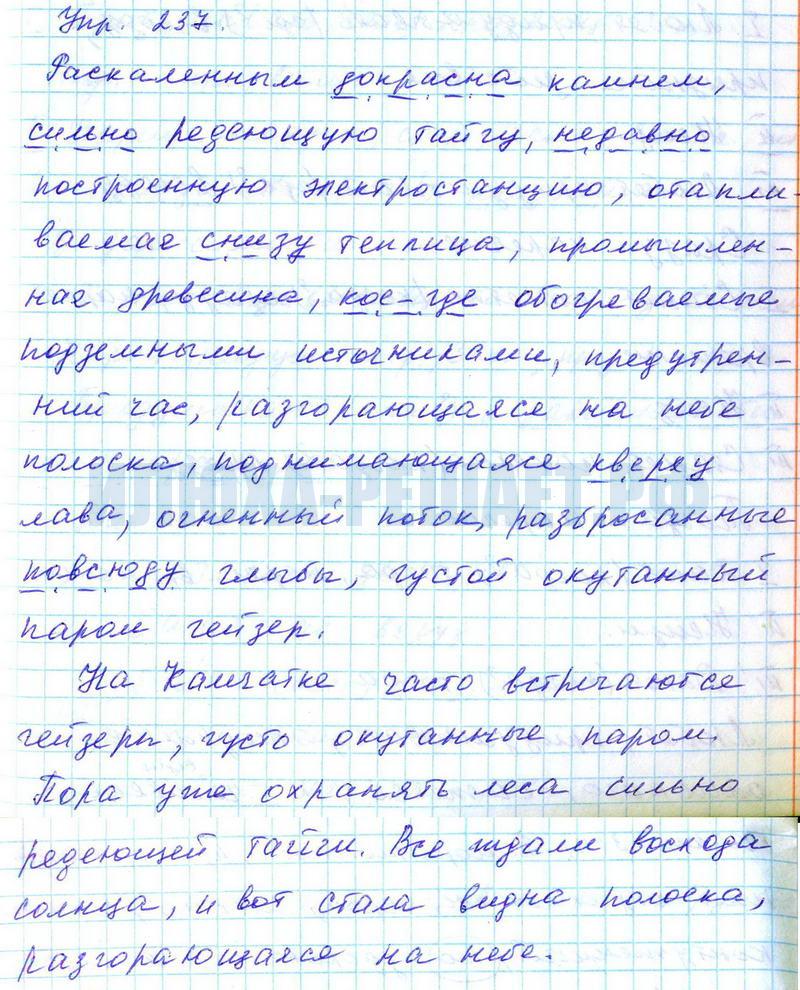 Упр. 237.
Раскаленным докрасна камнем,
сильно редеющую тайгу, недавно
построенную электростанцию, отапли-
ваемая снизу теплица, промышлен-
ная древесина, кое-где обогреваемые
подземными источниками, предутрен-
ний час, разгорающаяся на небе
полоска, поднимающаяся кверху
лава, огненный поток, разбросанные
повсюду глыбы, густой окутанный
паром гейзер.
На Камчатке часто встречаются
гейзеры, густо окутанные паром.
Пора уже охранять леса сильно
редеющей тайги. Все ждали восхода
солнца, и вот стала видна полоска,
разгорающаяся на небе.
ИЛЮХА-РЕШАЕТ.РФ